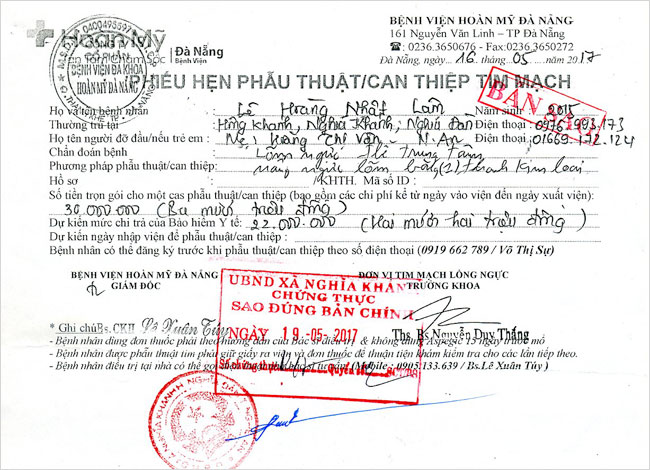 BỆNH VIỆN HOÀN MỸ ĐÀ NẴNG
161 Nguyễn Văn Linh – TP Đà Nẵng
☎: 0236.3650676 - Fax:0236.3650272
Hoàn Mỹ
Đà Nẵng
Bệnh viện
0400495597
CÔNG TY
CỔ PHẦN
BỆNH VIỆN ĐA KHOA
HOÀN MỸ ĐÀ NẴNG
Đà Nẵng, ngày 16 tháng 05 năm 2017
PHIẾU HẸN PHẪU THUẬT/CAN THIỆP TIM MẠCH
BẢN SAO
Họ và tên bệnh nhân : Lê Hoàng Nhật Lam Năm sinh : 2015
Thường trú tại : Hồng Khánh, Nghĩa Khánh, Nghĩa Đàn Điện thoại : 0976.993.173
Họ tên người đỡ đầu/nếu trẻ em : Mẹ: Hoàng Thị Vân - N.An Điện thoại : 01669.172.124
Chẩn đoán bệnh : Lõm ngực
Phương pháp phẫu thuật/can thiệp: nâng ngực lõm bằng (2) thanh kim loại
Hồ sơ /KHTH. Mã số ID :
Số tiền trọn gói cho một cas phẫu thuật/can thiệp (bao gồm các chi phí kể từ ngày vào viện đến ngày xuất viện):
30.000.000 (Ba mươi triệu đồng)
Dự kiến mức chi trả của Bảo hiểm Y tế: 22.000.000 (Hai mươi hai triệu đồng)
Dự kiến ngày nhập viện để phẫu thuật/can thiệp :
Bệnh nhân có thể đăng ký trước khi phẫu thuật/can thiệp theo số điện thoại (0919 662 789 / Võ Thị Sự)
BỆNH VIỆN HOÀN MỸ ĐÀ NẴNG
GIÁM ĐỐC
ĐƠN VỊ TIM MẠCH LỒNG NGỰC
TRƯỞNG KHOA
UBND XÃ NGHĨA KHÁNH
CHỨNG THỰC
SAO ĐÚNG BẢN CHÍNH
NGÀY 19-05-2017
Số chứng thực Quyển số
* Ghi chú:
Bs.CKII Lê Xuân Túy
Ths.Bs Nguyễn Duy Thắng
- Bệnh nhân dùng đơn thuốc phải theo hướng dẫn của Bác sĩ điều trị & không dùng Aspegic 15 ngày trước mổ
- Bệnh nhân được phẫu thuật tim phải giữ giấy ra viện và đơn thuốc để thuận tiện khám kiểm tra cho các lần tiếp theo.
- Bệnh nhân điều trị tại nhà có thể gọi (Mobile : 0905.133.639 / Bs.Lê Xuân Túy )